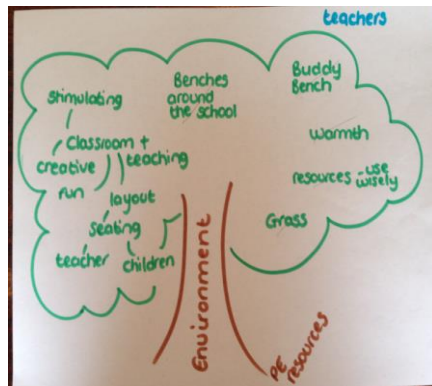 teachers
stimulating
Classroom +
teaching
creative
run
layout
seating
teacher
children
Benches
around
the school
Buddy
Bench
warmth
resources - use
wisely
Grass
Environment
PE
resources